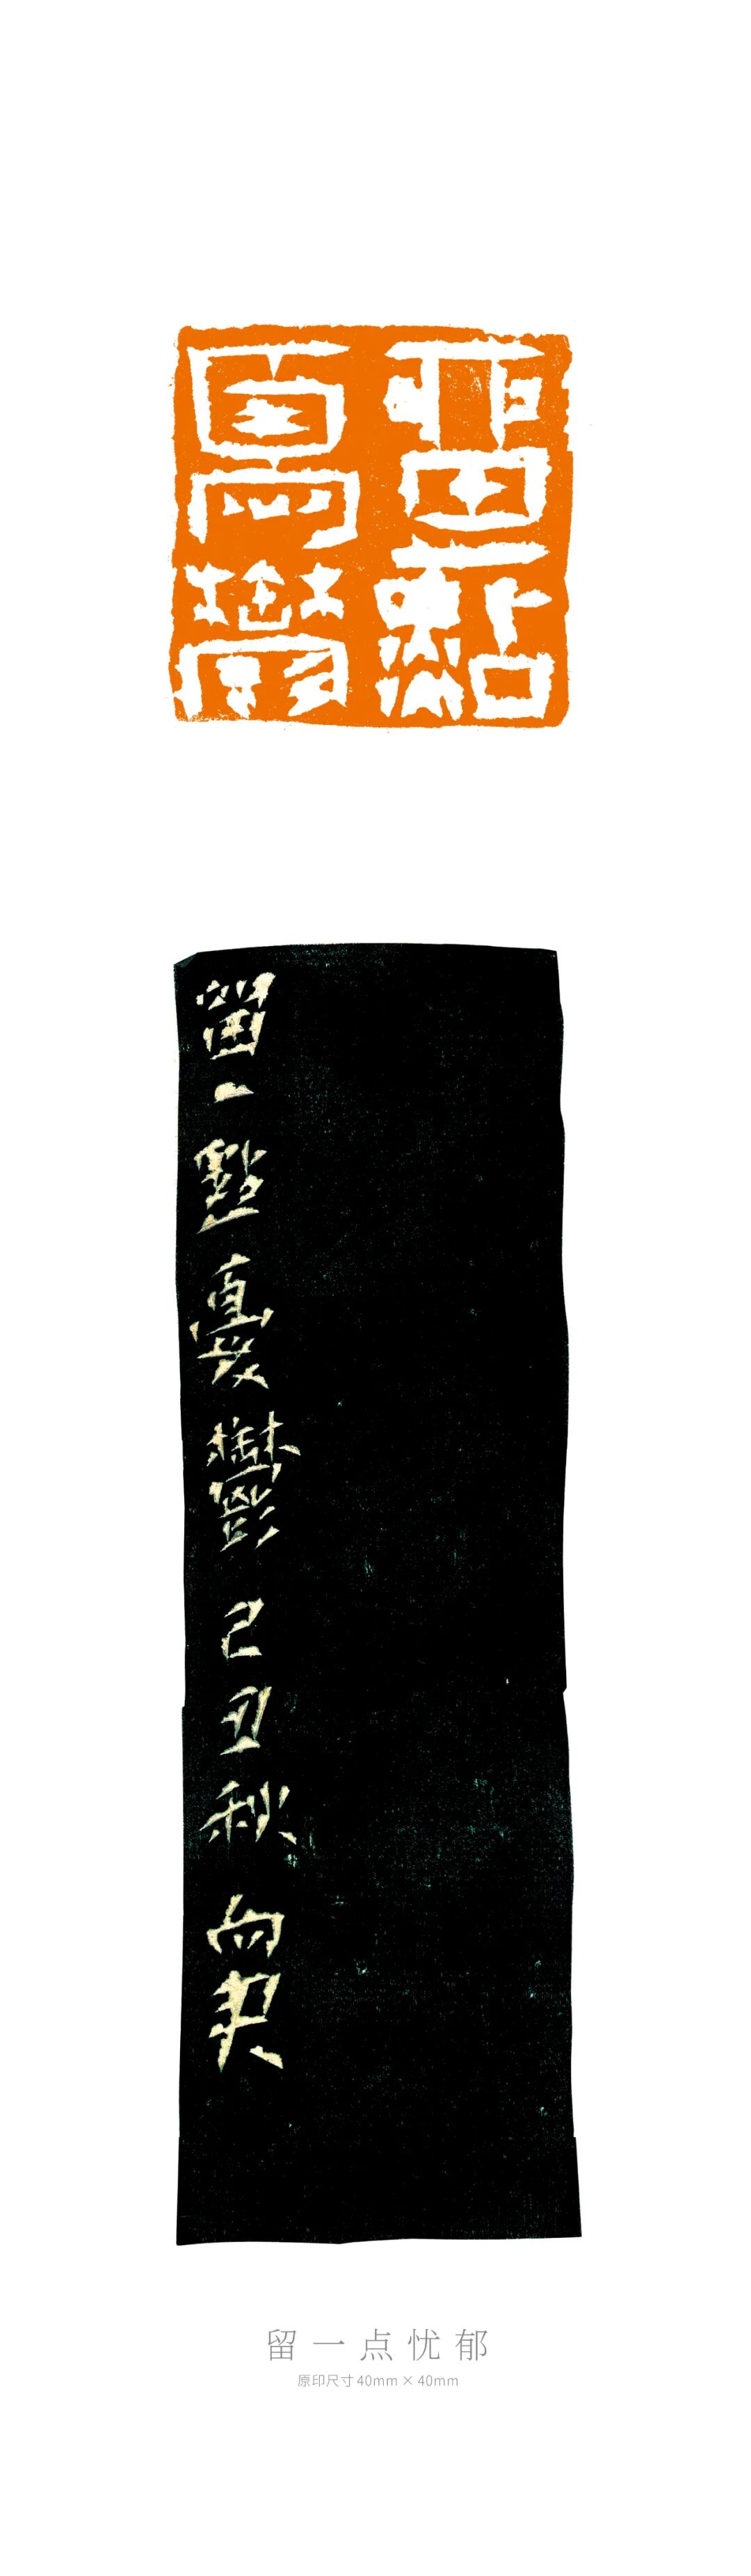 留一點
憂鬱
留一點憂鬱 己丑秋 向君
留一点忧郁
原印尺寸40mm×40mm